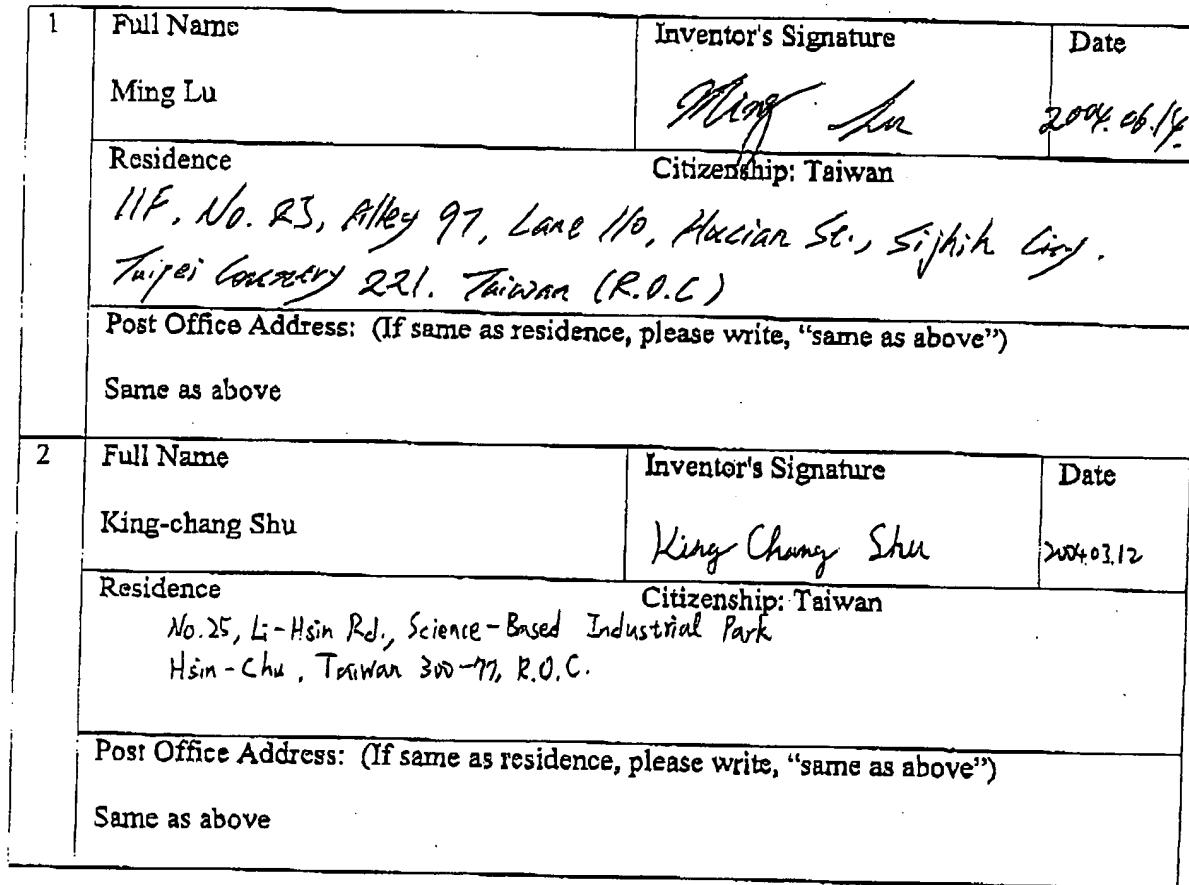 1 Full Name Inventor's Signature Date
Ming Lu Ming Lu 2004.06.14.
Residence Citizenship: Taiwan
11F, No. 23, Alley 97, Lane 110, St., Sijhih City.
Taipei 221. Taiwan (R.O.C)
Post Office Address: (If same as residence, please write, “same as above”)
Same as above
2 Full Name Inventor's Signature Date
King-chang Shu King Chang Shu 2004.03.12
Residence Citizenship: Taiwan
No.25, Li-Hsin Rd., Science-Based Industrial Park
Hsin-Chu, Taiwan 300-77, R.O.C.
Post Office Address: (If same as residence, please write, “same as above”)
Same as above